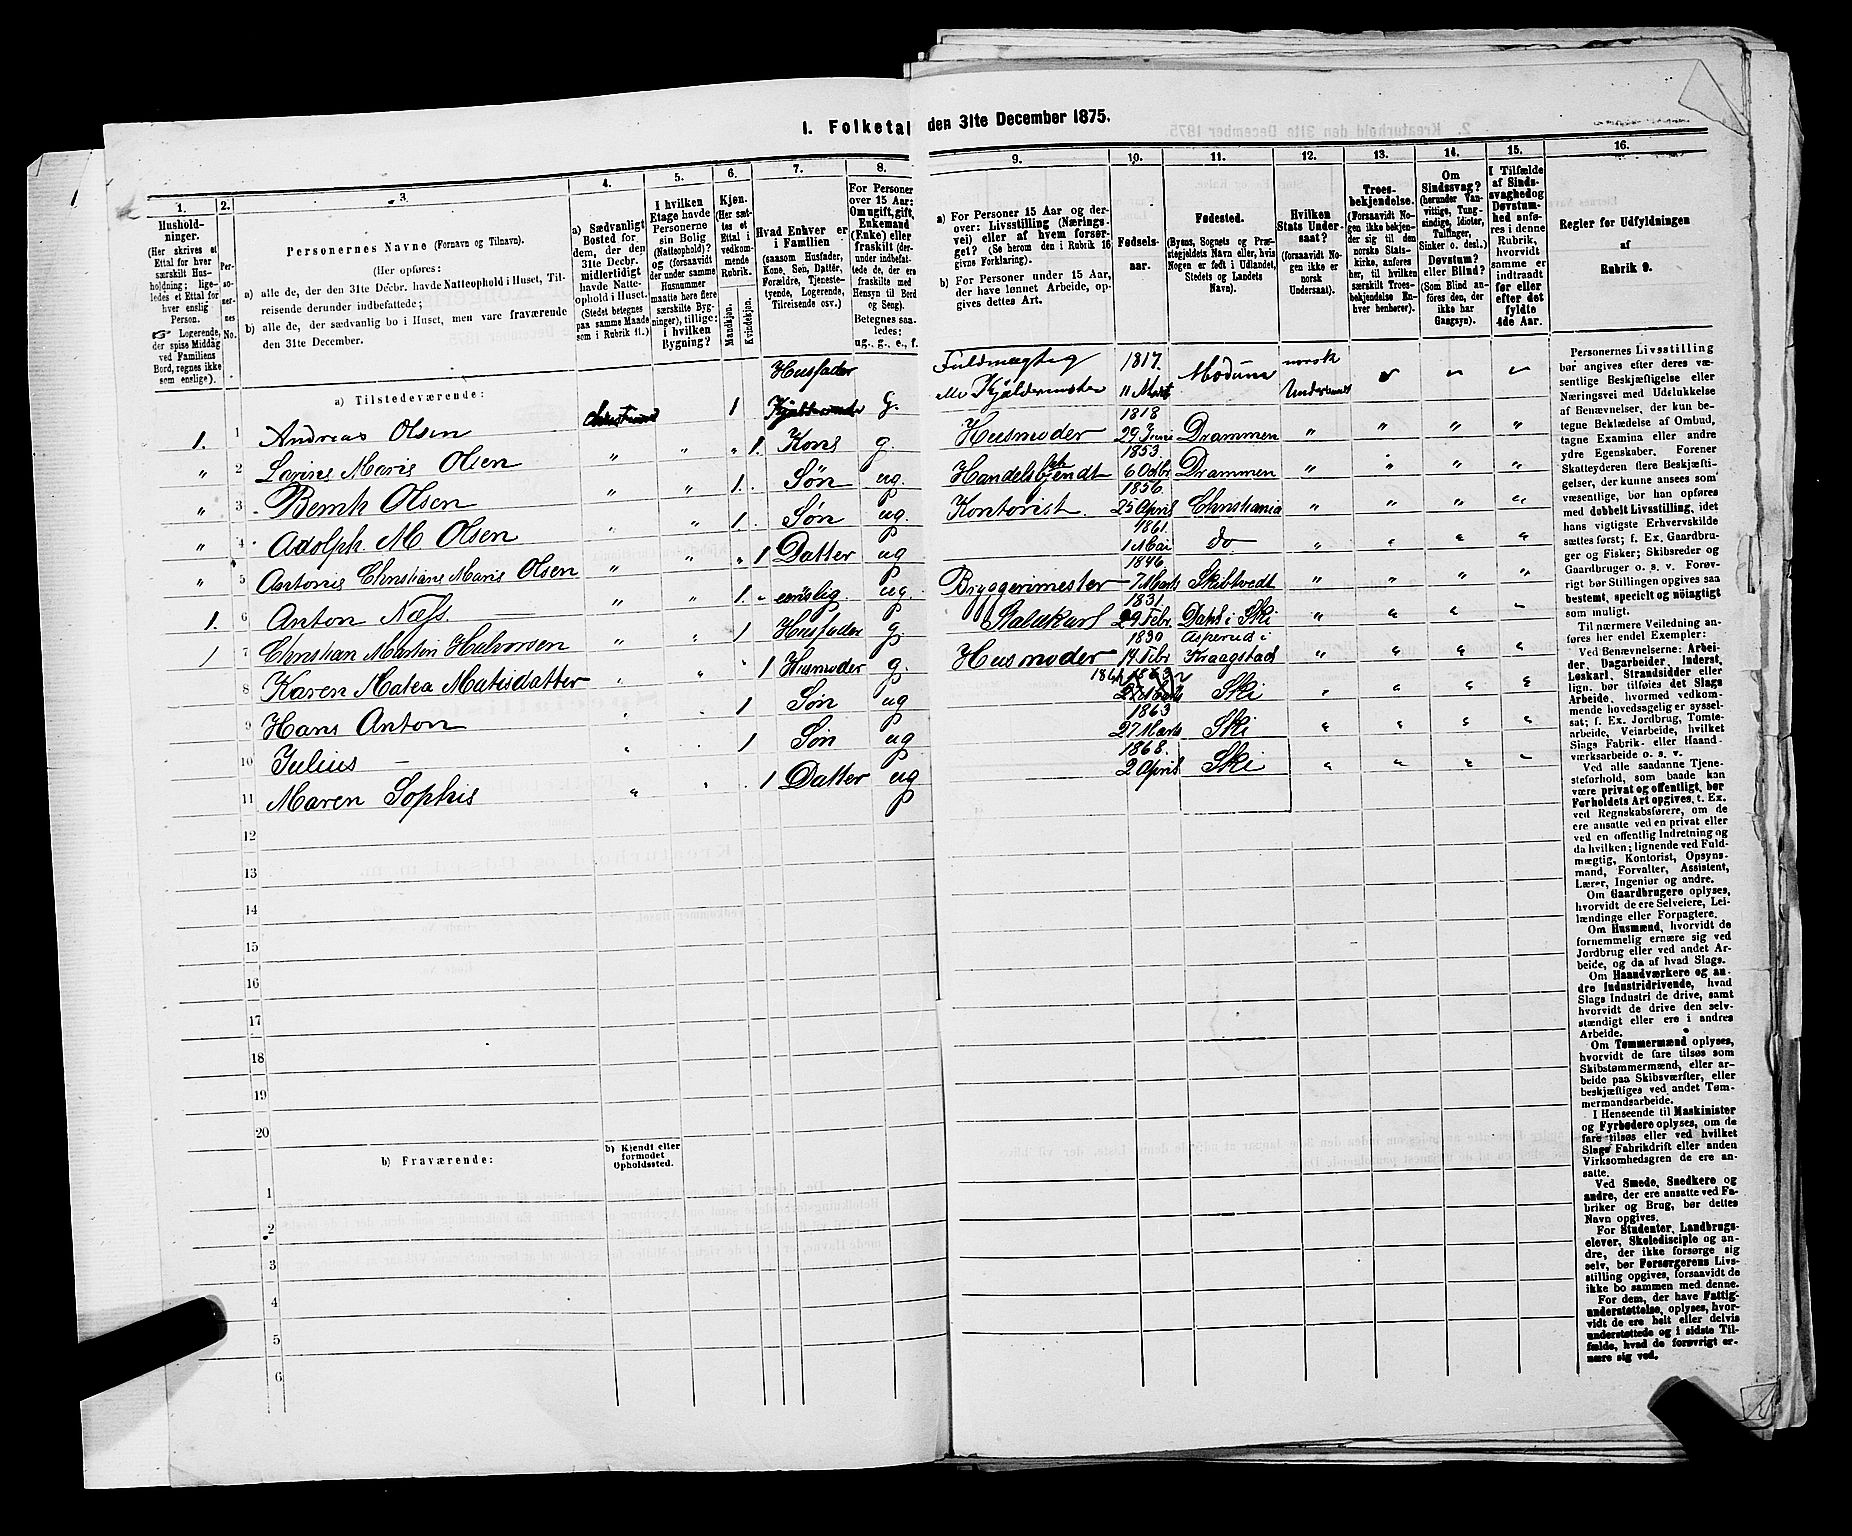 I. Folketal den 31te December 1875.
1. 2. 3. 4. 5. 6. 7. 8. 9. 10. 11. 12. 13. 14. 15. 16.
Husholdninger.
(Her skrives et
Ettal for hver
særskilt Husholdning;
ligeledes et Ettal for
hver enslig
Person.
Logerende,
der spise Middag
ved Familiens
Bord, regnes ikke
som enslige).
Personernes No.
Personernes Navne (Fornavn og Tilnavn).
(Her opføres:
a) alle de, der den 31te Decbr. havde Natteophold i Huset, Tilreisende derunder indbefattede;
b) alle de, der sædvanlig bo i Huset, men vare fraværende
den 31te December.
a) Sædvanligt
Bosted for
dem, der den
31te Decbr.
midlertidigt
havde Natteophold
i Huset.
(Stedet betegnes
paa samme Maade
som i Rubrik 11.)
I hvilken
Etage havde
Personerne
sin Bolig
(Natteophold)?
og (forsaavidt
der under samme
Husnummer
maatte høre flere
særskilte Bygninger),
tillige:
i hvilken
Bygning?
Kjøn.
(Her sættes
et
Ettal i
vedkommende
Rubrik.
Mandkjøn.
Kvindekjøn.
Hvad Enhver er
i Familien
(saasom Husfader,
Kone, Søn, Datter,
Forældre, Tjenestetyende,
Logerende,
Tilreisende osv.)
For Personer
over 15 Aar:
Om ugift, gift,
Enkemand
(Enke) eller
fraskilt (derunder
indbefattede
de, der ere
fraskilte med
Hensyn til Bord
og Seng).
Betegnes saaledes:
ug., g., e., f.
a) For Personer 15 Aar og derover:
Livsstilling (Næringsvei)
eller af hvem forsørget?
(Se herom den i Rubrik 16
givne Forklaring).
b) For Personer under 15 Aar,
der have lønnet Arbeide, opgives
dettes Art.
Fødselsaar.
Fødested.
(Byens, Sognets og Præstegjeldets
Navn eller, hvis
Nogen er født i Udlandet,
Stedets og Landets
Navn).
Hvilken
Stats Undersaat?
(forsaavidt Nogen
ikke er
norsk
Undersaat).
Troesbekjendelse.
(Forsaavidt Nogen
ikke bekjender
sig til den
norske Statskirke,
anføres
her, til hvilken
særskilt Troesbekjendelse
Enhver
henhører).
Om
Sindssvag?
(herunder Vanvittige,
Tungsindige,
Idioter,
Tullinger,
Sinker o. desl.)
Døvstum?
eller Blind?
(Som Blind anføres
den, der
ikke har
Gangsyn).
I Tilfælde
af Sindssvaghed
og
Døvstumhed
anføres
i denne
Rubrik,
hvorvidt
samme er
indtraadt
før eller
efter det
fyldte
4de Aar.
Regler for Udfyldningen
af
Rubrik 9.
a) Tilstedeværende:
1. 1 Andreas Olsen 1 Husfader g. Fuldmægtig 1817. 11 Mart Modum norsk Undersaat
" 2 Lovine Marie Olsen " " " 1. Kone g. Husmoder 1818 29 Juni Drammen " " " "
" 3 Bernth Olsen " " 1. Søn ug. Handelsbetjendt 1853. 6 Octbr Drammen " " " "
" 4 Adolph M Olsen " " 1. Søn ug. Kontorist 1856. 25 April Christiania " " " "
" 5 Antonie Christiane Marie Olsen " " " 1 Datter ug 1861. 1 Mai do " " " "
1. 6 Anton Næss " " 1. " enslig ug. Bryggerimester 1846 7 Marts Skibtvedt " " " "
1 7 Christian Martin Halvorsen " " 1 Husfader g. Staldkarl 1831. 29 Febr. Dahl i Ski " " " "
8 Karen Matea Matisdatter " " 1 Husmoder g. Husmoder 1830 14 Febr Asperud i Kraagstad " " " "
9 Hans Anton 1 Søn ug Ski " " " "
10 Julius — 1 Søn ug 1863 27 Marts Ski " " " "
11 Maren Sophie " " 1 Datter ug 1868. 2 April Ski " " " "
12
13
14
15
16
17
18
19
20
b) Fraværende:
b) Kjendt eller
formodet
Opholdssted.
1
2
3
4
5
6
Personernes Livsstilling
bør angives efter deres væsentlige
Beskjæftigelse eller
Næringsvei med Udelukkelse
af Benævnelser, der kun betegne
Beklædelse af Ombud,
tagne Examina eller andre
ydre Egenskaber. Forener
Skatteyderen flere Beskjæftigelser,
der kunne ansees som
væsentlige, bør han opføres
med dobbelt Livsstilling, idet
hans vigtigste Erhvervskilde
sættes først; f. Ex. Gaardbruger
og Fisker; Skibsreder og
Gaardbruger o. s. v. Forøvrigt
bør Stillingen opgives saa
bestemt, specielt og nøiagtigt
som muligt.
Til nærmere Veiledning anføres
her endel Exempler:
Ved Benævnelserne: Arbeider,
Dagarbeider, Inderst,
Løskarl, Strandsidder eller
lign. bør tilføies det Slags
Arbeide, hvormed vedkommende
hovedsagelig er sysselsat;
f. Ex. Jordbrug, Tomtearbeide,
Veiarbeide, hvilket
Slags Fabrik- eller Haandværksarbeide
o. s. v.
Ved alle saadanne Tjenesteforhold,
som baade kan
være privat og offentlig, bør
Forholdets Art opgives, t. Ex.
ved Regnskabsførere, om de
ere ansatte ved en privat eller
ved en offentlig Indretning og
da hvilken; lignende ved Fuldmægtig,
Kontorist, Opsynsmand,
Forvalter, Assistent,
Lærer, Ingeniør og andre.
Om Gaardbrugere oplyses,
hvorvidt de ere Selveiere, Leilændinge
eller Forpagtere.
Om Husmænd, hvorvidt de
fornemmelig ernære sig ved
Jordbrug eller ved andet Arbeide,
og da af hvad Slags.
Om Haandværkere og andre
Industridrivende, hvad
Slags Industri de drive, samt
hvorvidt de drive den selvstændigt
eller ere i andres
Arbeide.
Om Tømmermænd oplyses,
hvorvidt de fare tilsøs som
Skibstømmermænd, eller arbeide
paa Skibsværfter, eller
beskjæftiges ved andet Tømmermandsarbeide.
I Henseende til Maskinister
og Fyrbødere oplyses, om de
fare tilsøs eller ved hvilket
Slags Fabrikdrift eller anden
Virksomhedsgren de ere ansatte.
Ved Smede, Snedkere og
andre, der ere ansatte ved Fabriker
og Brug, bør dettes
Navn opgives.
For Studenter, Landbrugselever,
Skoledisciple og andre,
der ikke forsørge sig
selv, bør Forsørgerens Livsstilling
opgives, forsaavidt de
ikke bo sammen med denne.
For dem, der have Fattigunderstøttelse,
oplyses, hvorvidt
de ere helt eller delvis
understøttede og i sidste Tilfælde,
hvad de forøvrigt ernære
sig ved.